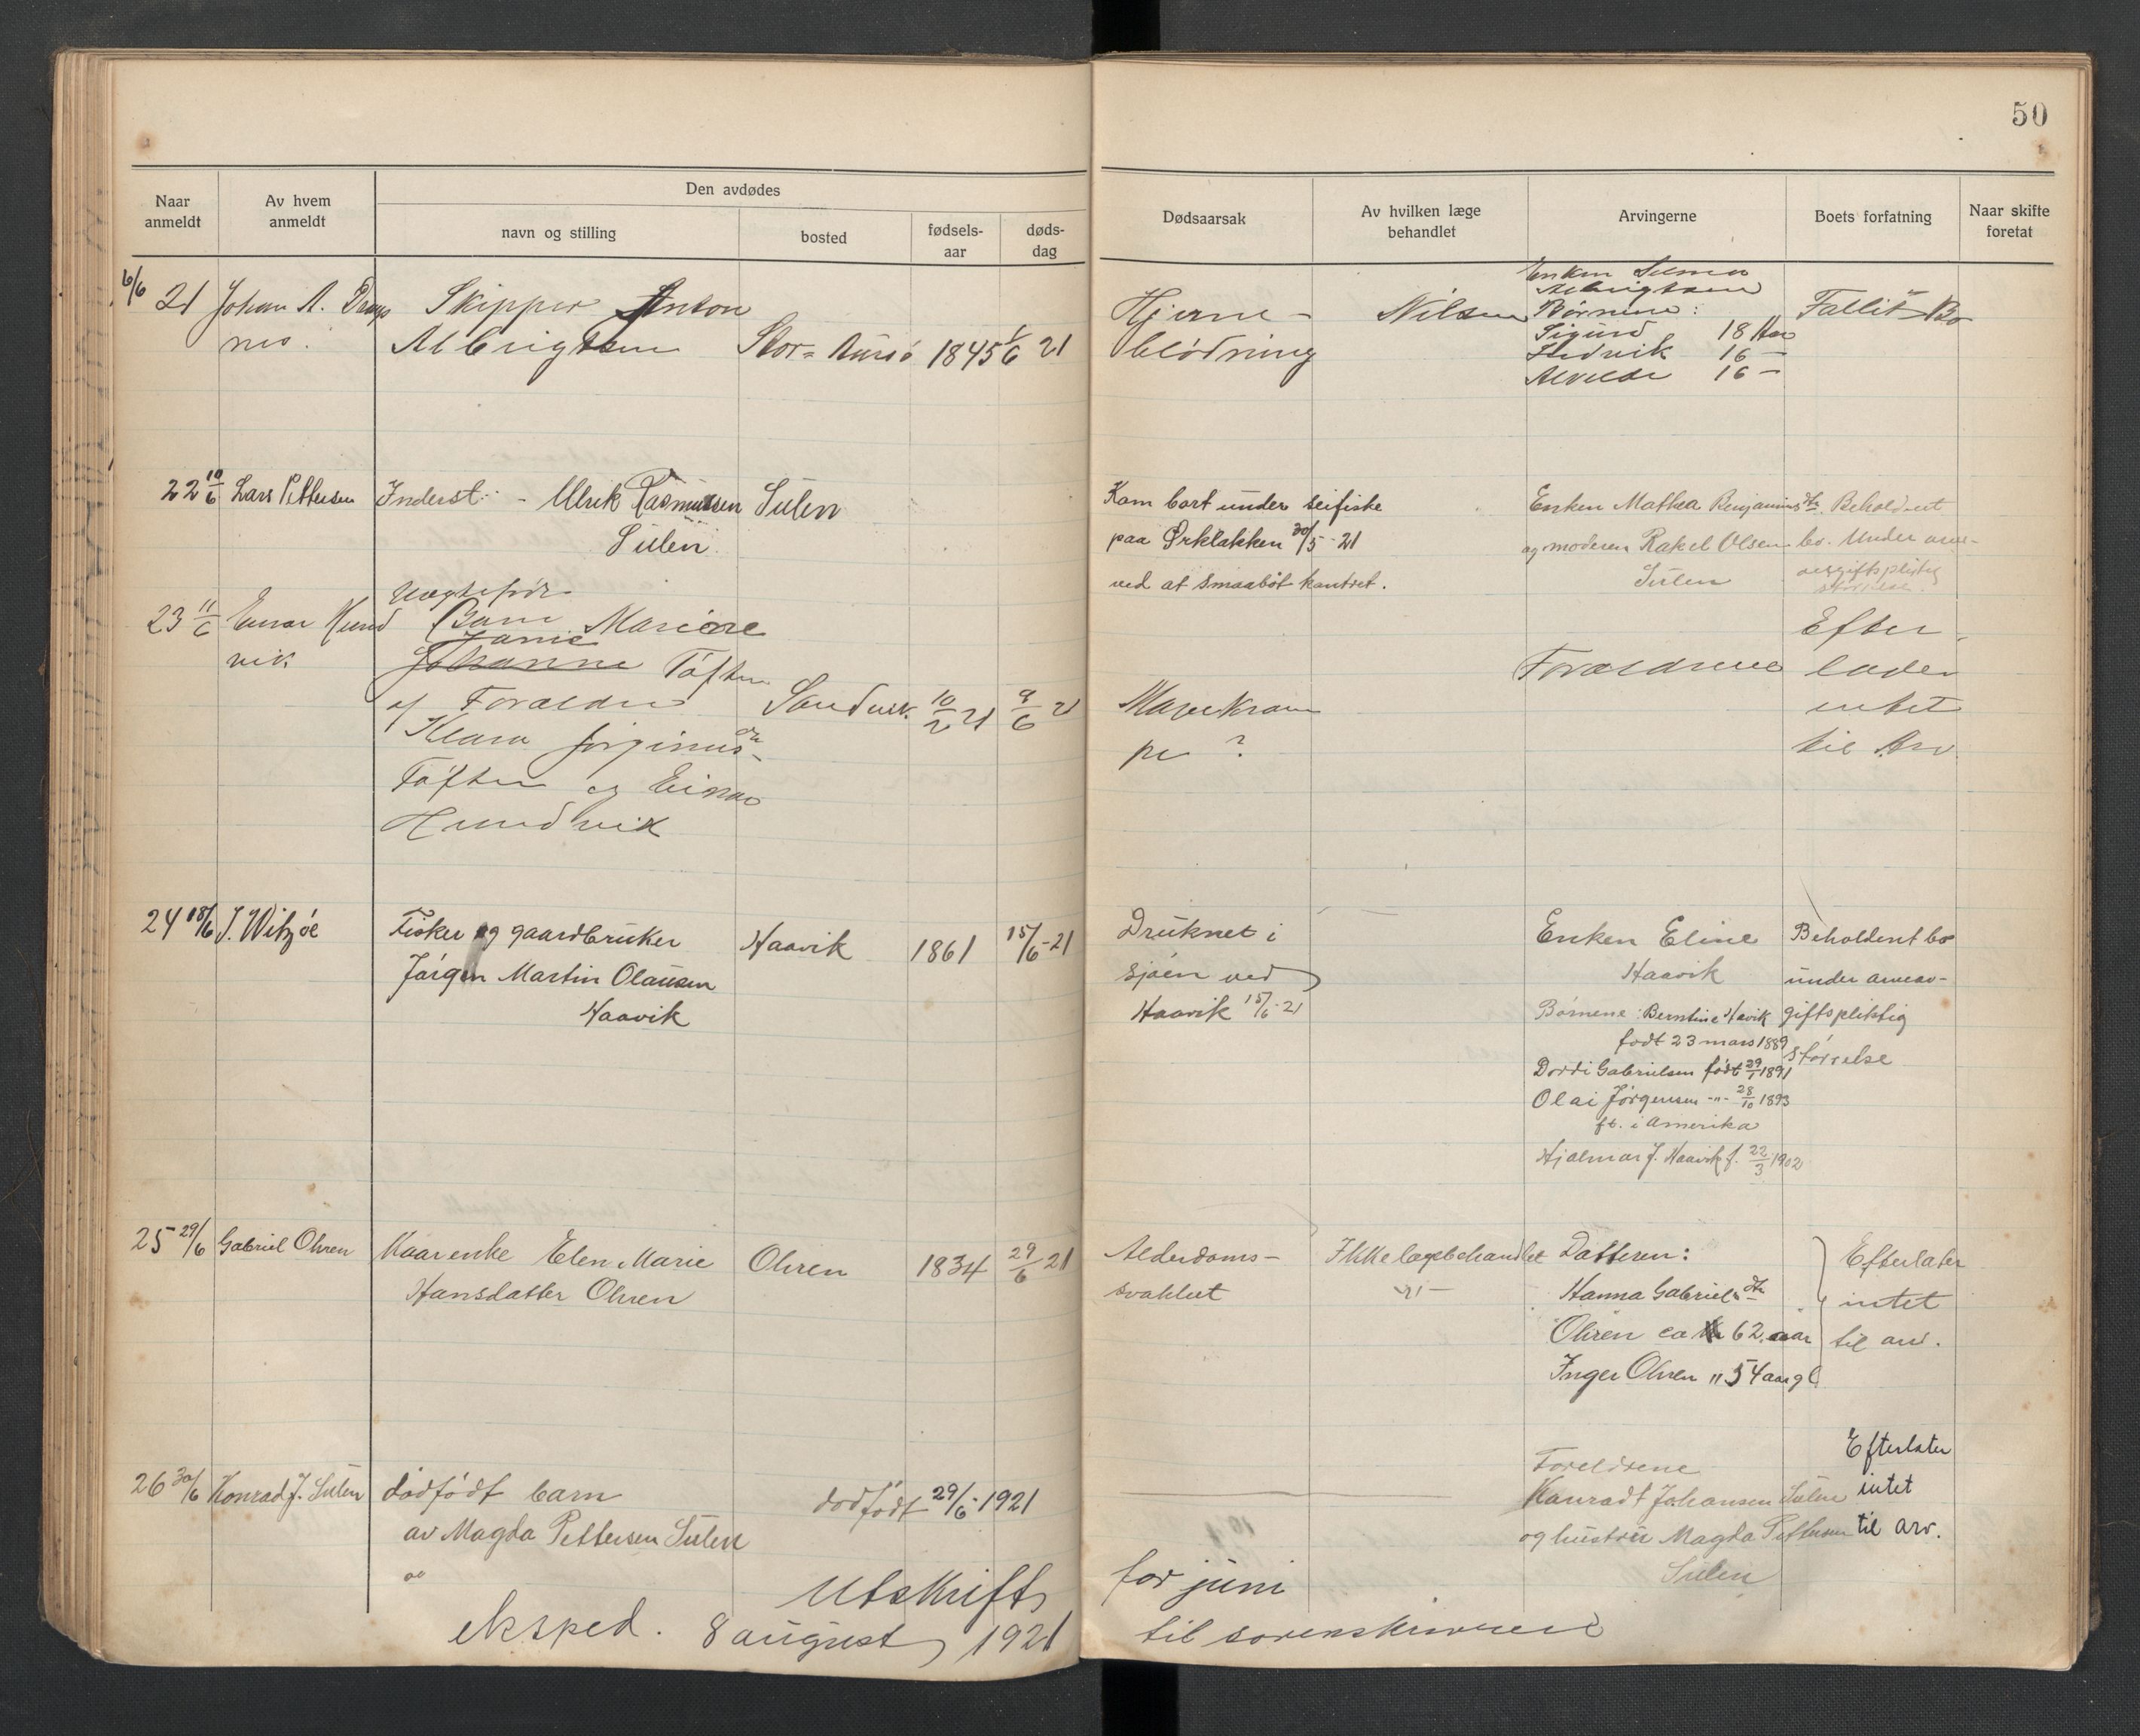 50
Naar anmeldt
Av hvem anmeldt
Den avdødes
navn og stilling
bosted
fødsels-aar
døds-dag
Dødsaarsak
Av hvilken læge behandlet
Arvingerne
Boets forfatning
Naar skifte foretat
6/6 21 Johan A.
Skipper Anton
Albrigtsen
1845 21
Hjerne-
blödning
Nilsen
Enken
Albrigtsen
Börnene:
Sigurd 18 Aar
Hedvik 16 —
Alvilde 16 —
Fallit Bo
22 10/6 Lars Pettersen
Inderst. - Ulrik Rasmussen
Sülen
Sülen
Kom bort under seifiske
paa 30/5-21
ved at smaabøt kantret.
Enken Mathea Benjaminsdtr.
og moderen Rakel Olsen
Sülen
Beholdent
bo. Under arve-
avgiftspligtig
størrelse.
23 11/6 Einar Hund
vik
Uægtefød
Barn Marie
Johanne Töften
af Forældre
Klara Jörginusdtr
Töften og Einar
Hundvik
Sandvik. 10/2 21 9/6 21
Mavekram
pe ?
Forældrene
Efter
lader
intet
til Arv
24 18/6 J. Witzöe
Fisker og gaardbrüker
Jörgen Martin Olaüsen
Haavik
Haavik
1861
15/6-21
Drüknet i
sjöen ved
Haavik 15/6-21
Enken Eline
Haavik
Børnene: Berntine Havik
födt 23 mars 1889
Dordi Gabrielsen födt 29/1 1891
Olai Jörgensen -"- 28/10 1893
ft. i Amerika
Hjalmar J. Haavik f. 22/3 1902
Beholdent bo
ünder arveav-
giftspliktig
störrelse
25 29/6 Gabriel Ohren
Kaarenke Elen Marie
Hansdatter Ohren
Ohren
1834
29/6 21
Alderdoms-
svakhet
Ikke lægebehandlet
Datteren:
Hanna Gabrielsdtr
Ohren ca 62 aar
Inger Ohren " 54 aar gl
Efterlater
intet
til arv.
26 30/6 Konrad J. Sülen
dödfödt barn
av Magda Pettersen Sülen
dödfödt 29/6-1921
Foreldrene
Konradt Johansen Sülen
og hüstrü Magda Pettersen
Sülen
Efterlater
intet
til arv.
Utskrift for jüni
eksped. 8 aügust 1921 til sorenskriveren